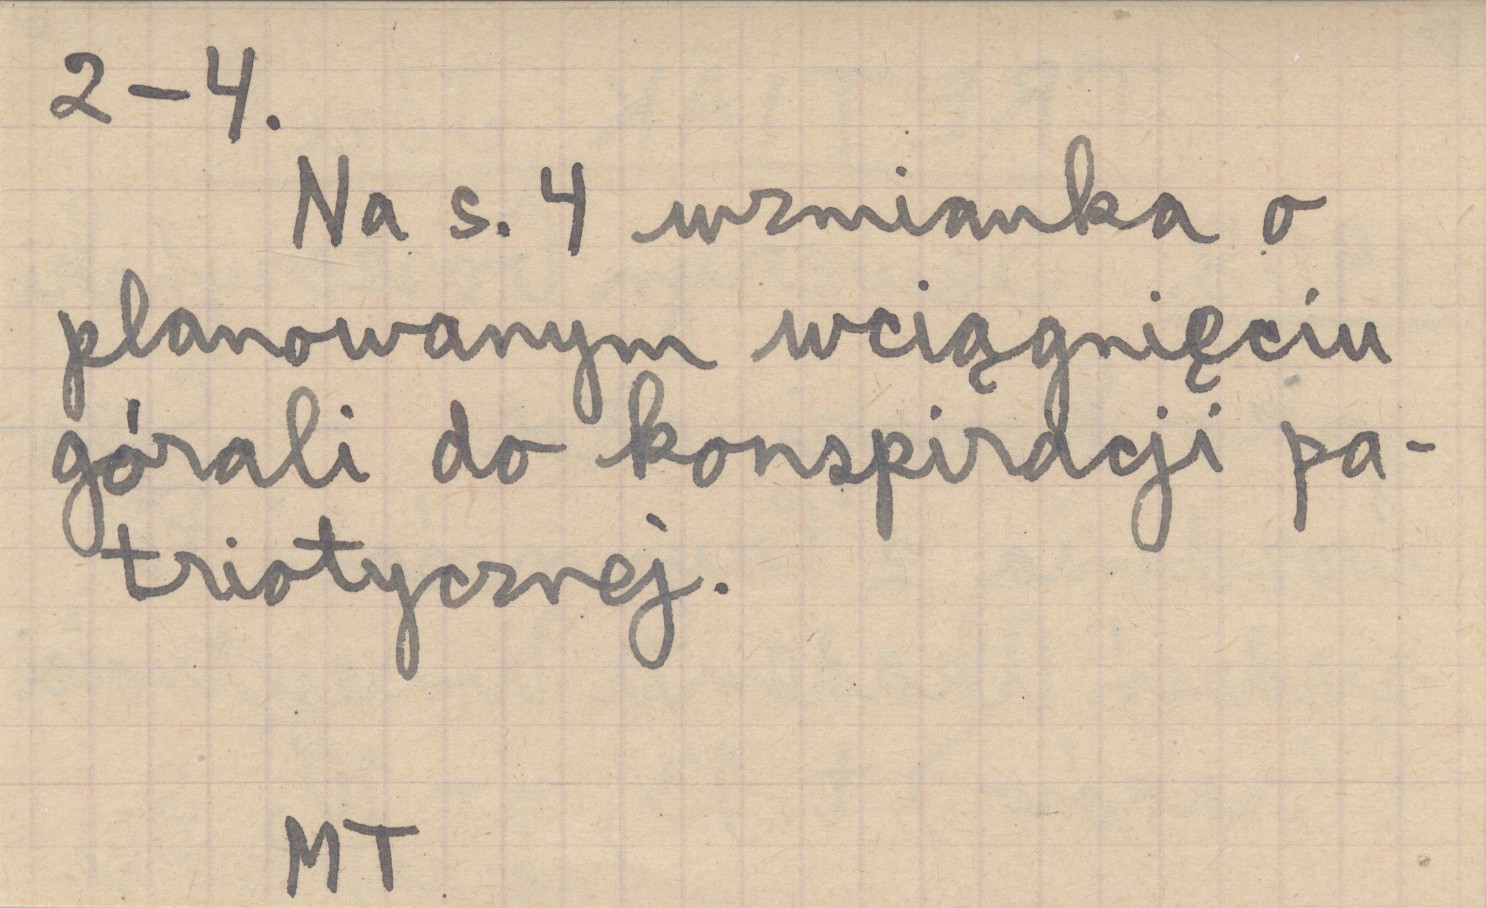 2-4.
Na s. 4 wzmianka o
planowanym wciągnięciu
górali do konspiracji pa-
triotycznej.
MT